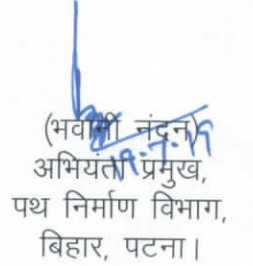 (भवानी नंदन)
19.7.19
अभियंता प्रमुख,
पथ निर्माण विभाग,
बिहार, पटना।